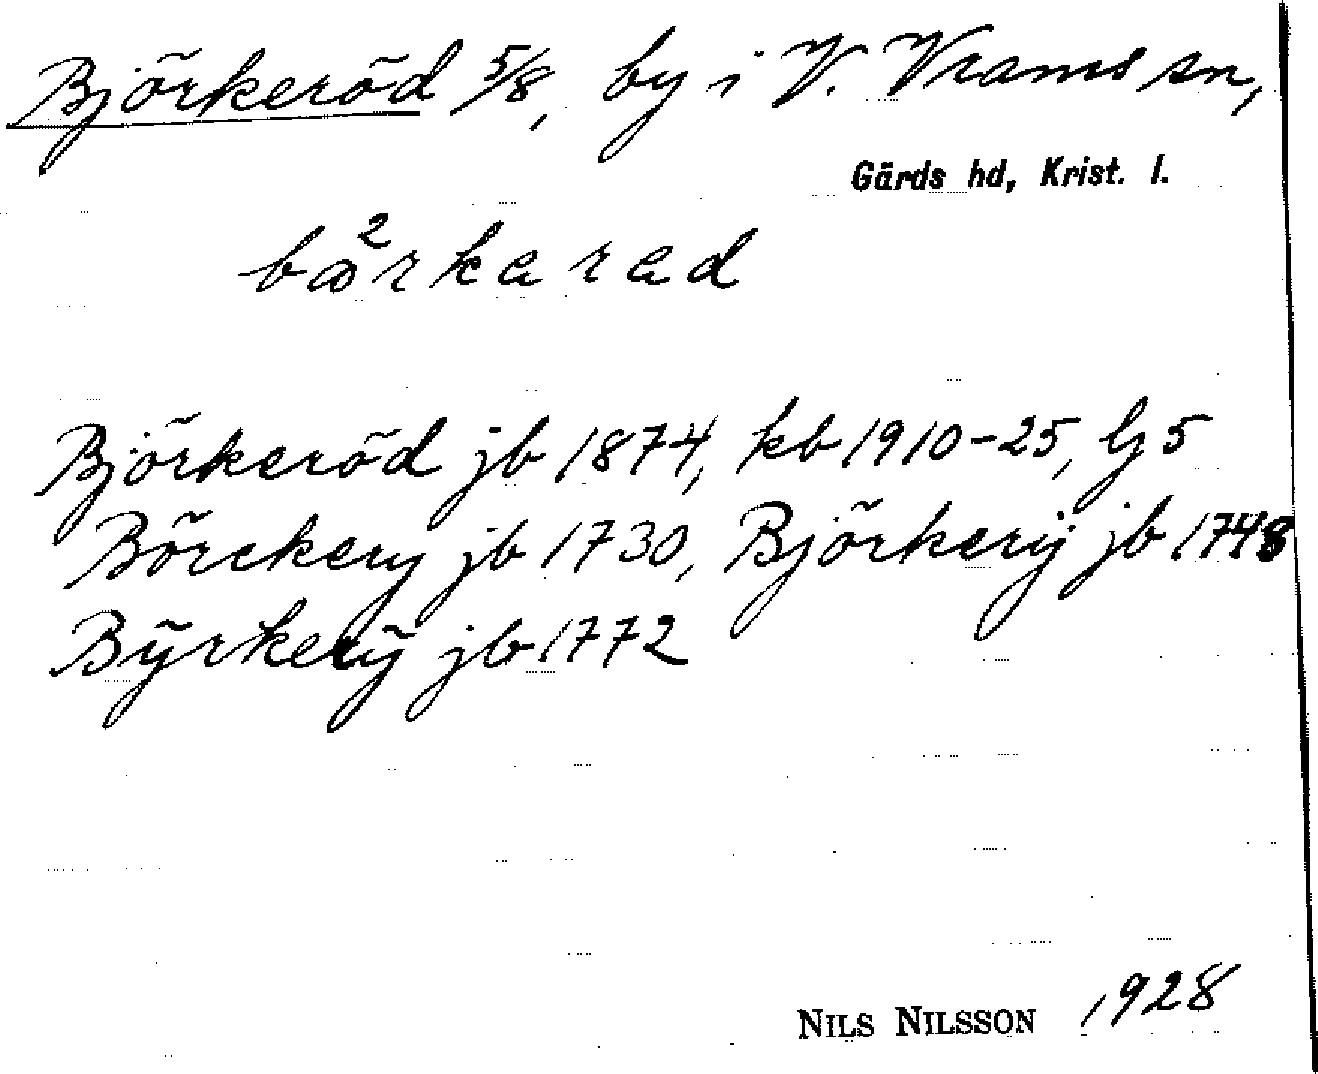 Björkeröd 5/8, by i V. Vrams sn,
Gärds hd, Krist. l.
bœ²rkarad
Björkeröd jb 1874, kb 1910-25, Gj 5
Börckery jb 1730, Björkerÿ jb 1748
Bÿrkerÿ jb 1772
NILS NILSSON 1928